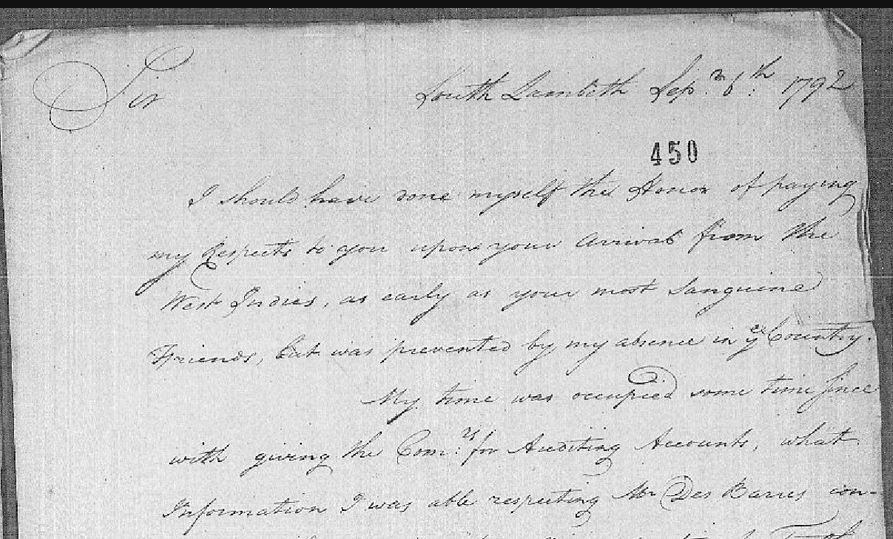 Sir
South Lambeth Sepr. 6th. 1792
450
I should have done myself the Honor of paying
my Respects to you upon your Arrival from the
West Indies, as early as your most Sanguine
Friends, but was prevented by my absence in ye Country.
My time was occupied some time since
with giving the Comrs. for Auditing Accounts, what
Information I was able respecting Mr Des Barres con-